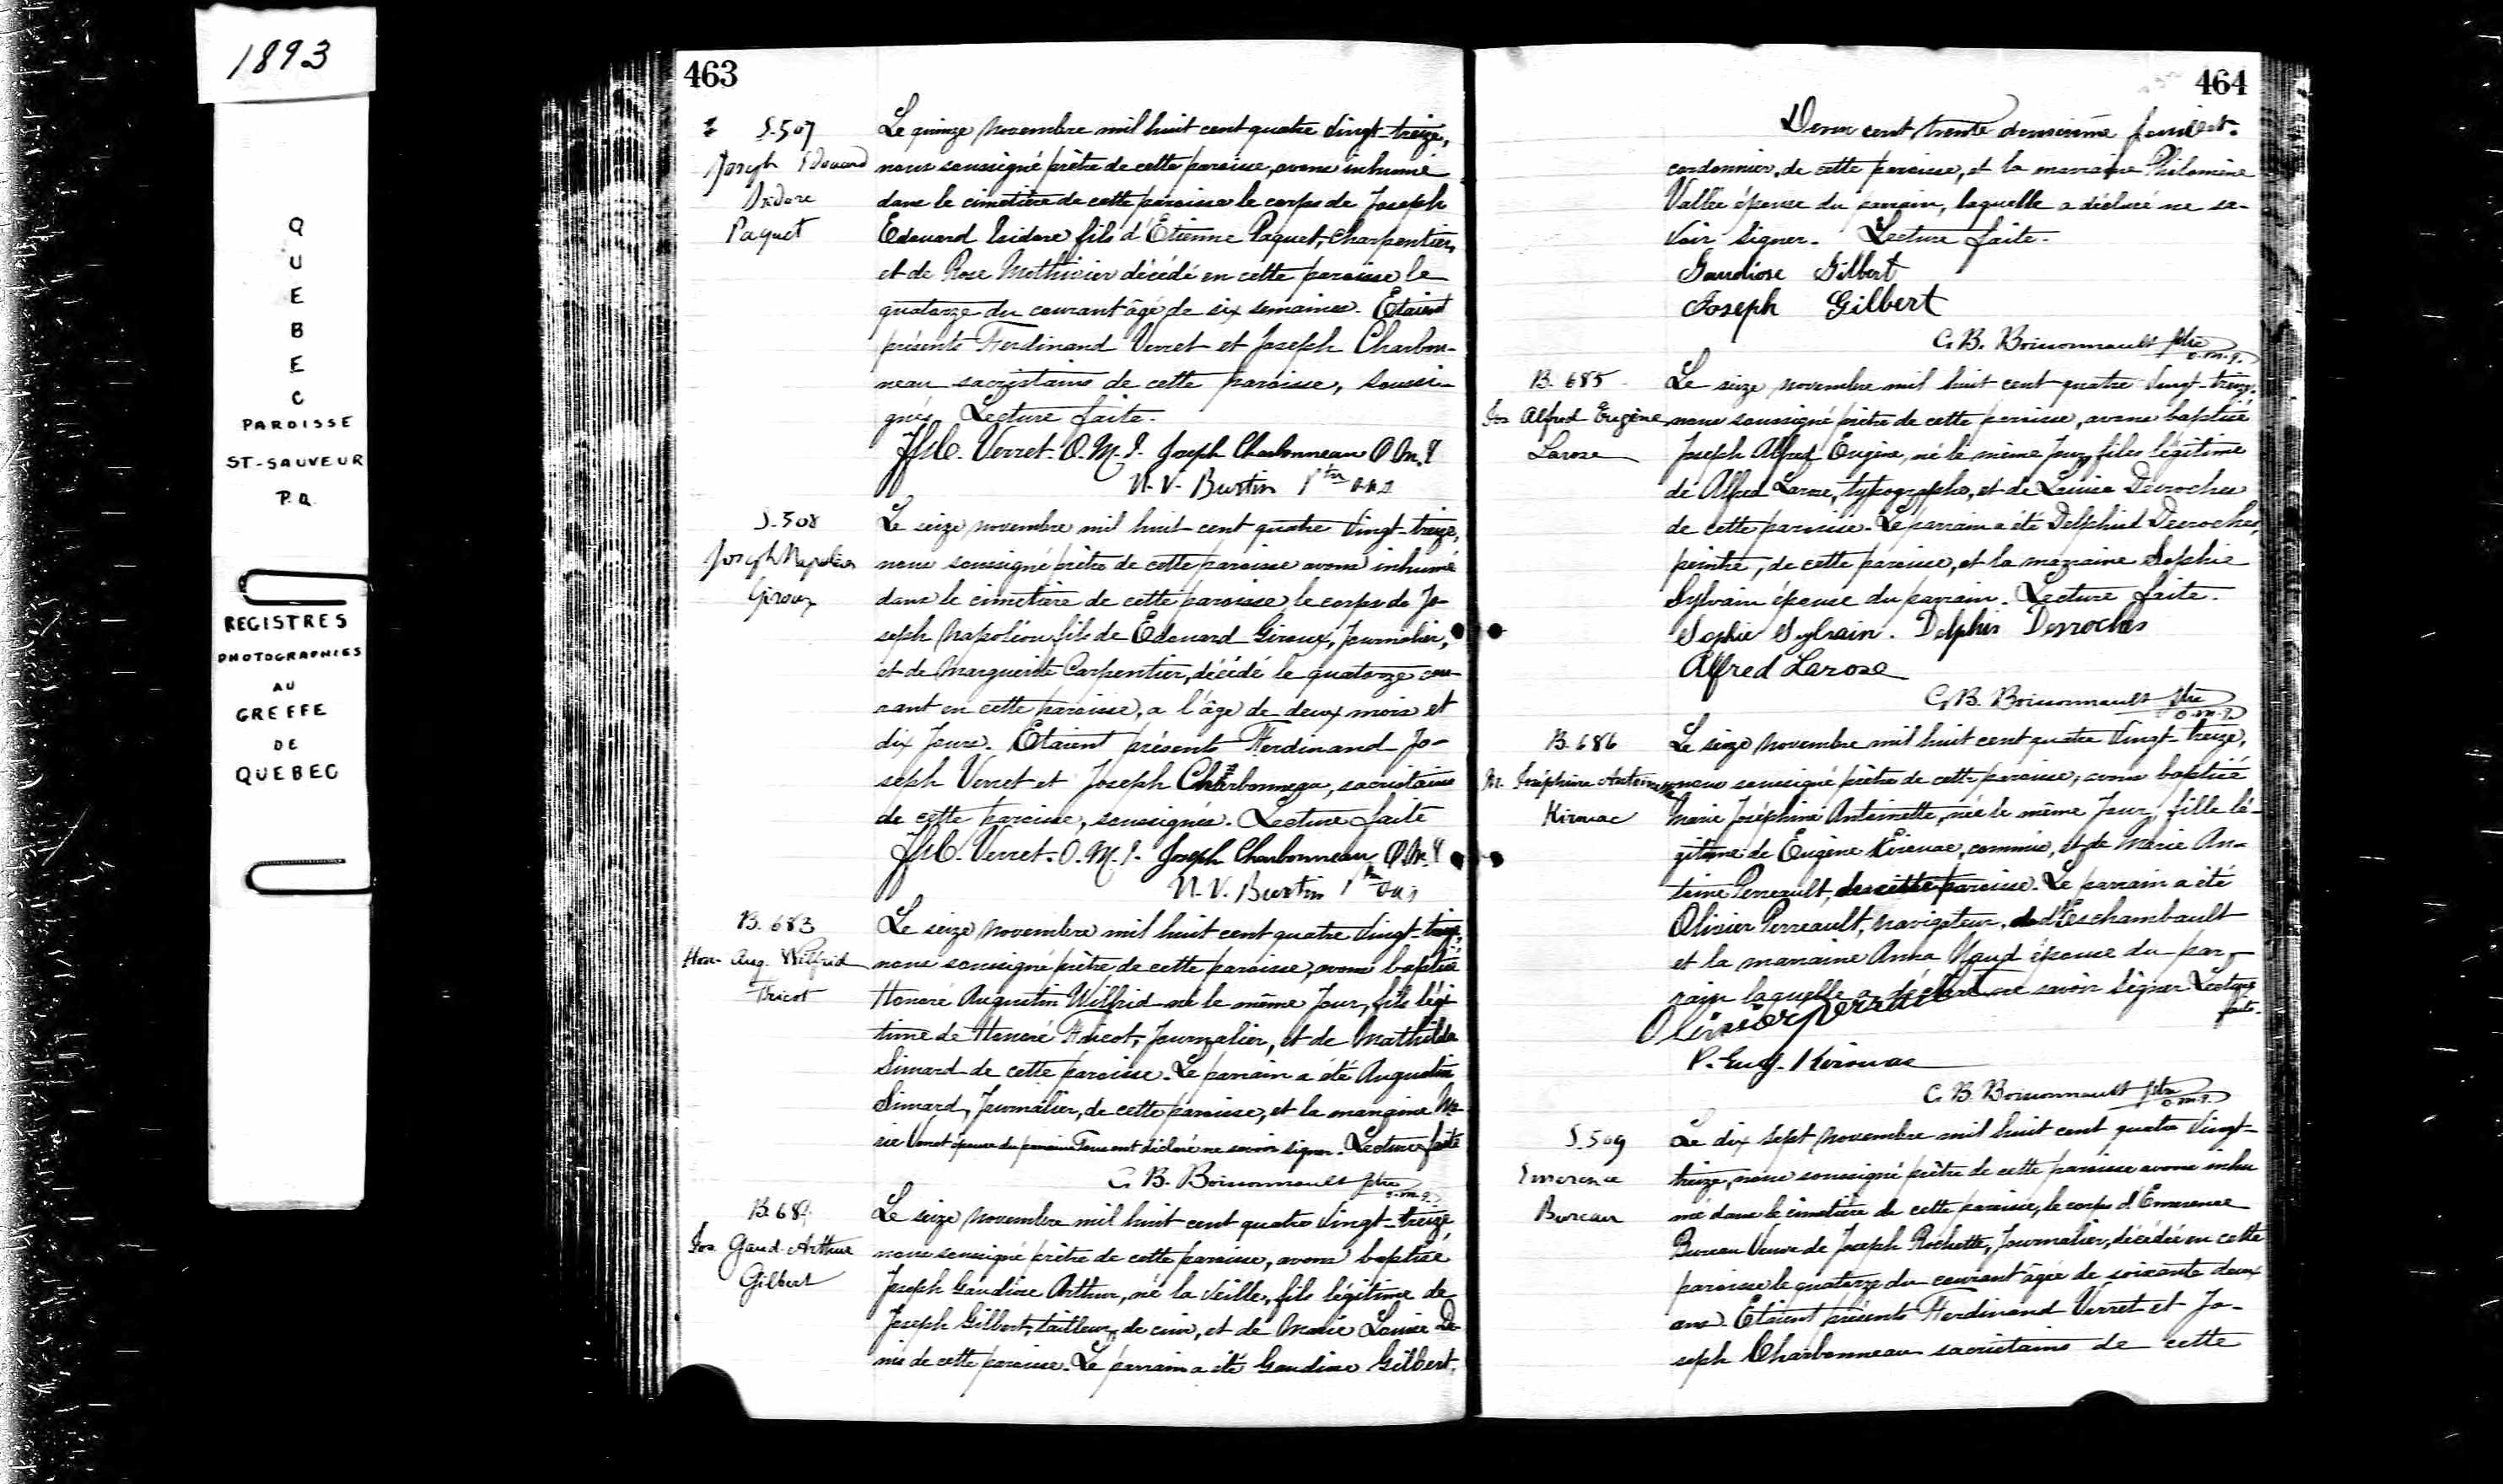 1893
QUEBEC
PAROISSE
ST-SAUVEUR
P.Q.
REGISTRES
PHOTOGRAPHIES
AU
GREFFE
DE
QUEBEC
463
S.507
Joseph Edouard
Isidore
Paquet
Le quinze Novembre mil huit cent quatre vingt-treize,
nous soussigné prêtre de cette paroisse, avons inhumé
dans le cimetière de cette paroisse le corps de Joseph
Edouard Isidore fils d'Etienne Paquet, charpentier,
et de Rose Methivier décédé en cette paroisse le
quatorze du courant âgé de six semaines. Etaient
présents Ferdinand Verret et Joseph Charbon-
neau sacristains de cette paroisse, soussi-
gnés. Lecture faite.
Verret. O.M.I. Joseph Charbonneau O.M.I
N.V. Burtin Ptre o.m.i
S.508
Joseph Napoléon
Giroux
Le seize novembre mil huit cent quatre vingt-treize,
nous soussigné prêtre de cette paroisse avons inhumé
dans le cimetière de cette paroisse, le corps de Jo-
seph Napoléon fils de Edouard Giroux, Journalier,
et de Marguerite Carpentier, décédé le quatorze cou-
rant en cette paroisse, a l'âge de deux mois et
dix jours. Etaient présents Ferdinand Jo-
seph Verret et Joseph Charbonneau, sacristains
de cette paroisse, soussignés. Lecture faite
Verret. O.M.I. Joseph Charbonneau O.M.I
N.V. Burtin Ptre o.m.i
B.683
Hon. Aug. Wilfrid
Tricot
Le seize Novembre mil huit cent quatre vingt-treize,
nous soussigné prêtre de cette paroisse, avons baptisé
Honoré Augustin Wilfrid né le même jour, fils légi
time de Honoré Tricot, Journalier, et de Mathilde
Simard de cette paroisse. Le parrain a été Augustin
Simard, Journalier, de cette paroisse, et la marraine Ma-
rie épouse du parrain Tous ont déclaré ne savoir signer. Lecture faite
C.B. Boissonnault ptre
o.m.i.
B.684
Jos. Gaud. Arthur
Gilbert
Le seize Novembre mil huit cent quatre vingt-treize,
nous soussigné prêtre de cette paroisse, avons baptisé
Joseph Gaudiose Arthur, né la veille, fils légitime de
Joseph Gilbert, tailleur de cuir, et de Marie Louise De-
nis de cette paroisse. Le parrain a été Gaudiose Gilbert,
464
Deux cent trente deuxième feuillet.
cordonnier, de cette paroisse, et la marraine Philomène
Vallée épouse du parrain, laquelle a déclaré ne sa-
voir signer. Lecture faite.
Gaudiose Gilbert
Joseph Gilbert
C.B. Boissonnault ptre
o.m.i.
B.685
Jos Alfred Eugène
Larose
Le seize novembre mil huit cent quatre vingt-treize,
nous soussigné prêtre de cette paroisse, avons baptisé
Joseph Alfred Eugène, né le même jour, fils légitime
de Alfred Larose, typographe, et de Louise Desroches
de cette paroisse. Le parrain a été Delphis Desroches,
peintre, de cette paroisse, et la marraine Sophie
Sylvain épouse du parrain. Lecture faite.
Sophie Sylvain. Delphis Desroches
Alfred Larose
C.B. Boissonnault ptre
o.m.i.
B.686
M. Joséphine Antoinette
Kirouac
Le seize Novembre mil huit cent quatre vingt-treize,
nous soussigné prêtre de cette paroisse, avons baptisé
Marie Joséphine Antoinette, née le même jour, fille lé-
gitime de Eugène Kirouac, commis, et de Marie An-
toine Perreault, de cette paroisse. Le parrain a été
Olivier Perreault, navigateur, Deschambault
et la marraine Anna Naud épouse du par-
rain laquelle a déclaré ne savoir signer Lecture
faite.
Olivier perrault
P. Eug. Kirouac
C.B. Boissonnault ptre
o.m.i.
S.509
Emerence
Bureau
Le dix sept novembre mil huit cent quatre vingt-
treize, nous soussigné prêtre de cette paroisse avons inhu
mé dans le cimetière de cette paroisse, le corps d'Emerence
Bureau Veuve de Joseph Rochette, Journalier, décédée en cette
paroisse le quatorze du courant âgée de soixante deux
ans. Etaient présents Ferdinand Verret et Jo-
seph Charbonneau sacristains de cette